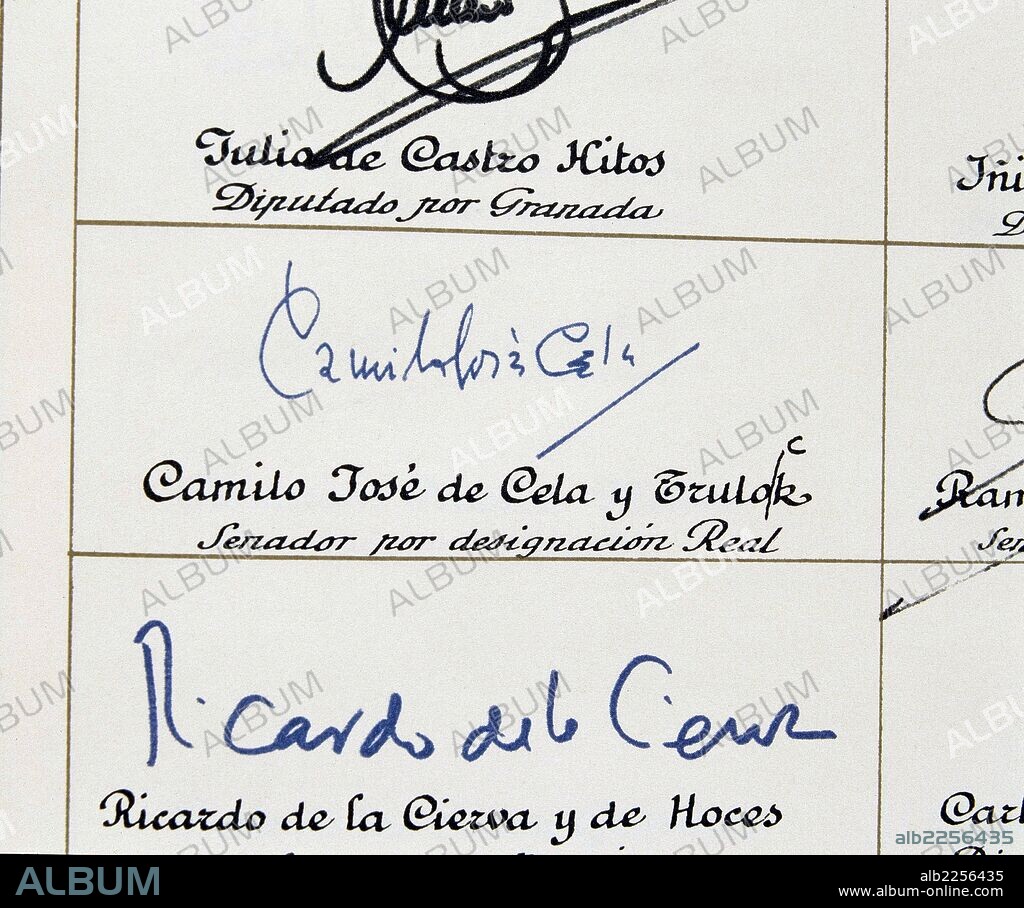 Julio de Castro Hitos
Diputado por Granada
Iñi
D
Camilo José Cela
Camilo José de Cela y Trulock
Senador por designación Real
Ram
Sen
Ricardo de la Cierva
Ricardo de la Cierva y de Hoces
Carl
alb2256435
ALBUM
alb2256435
www.album-online.com